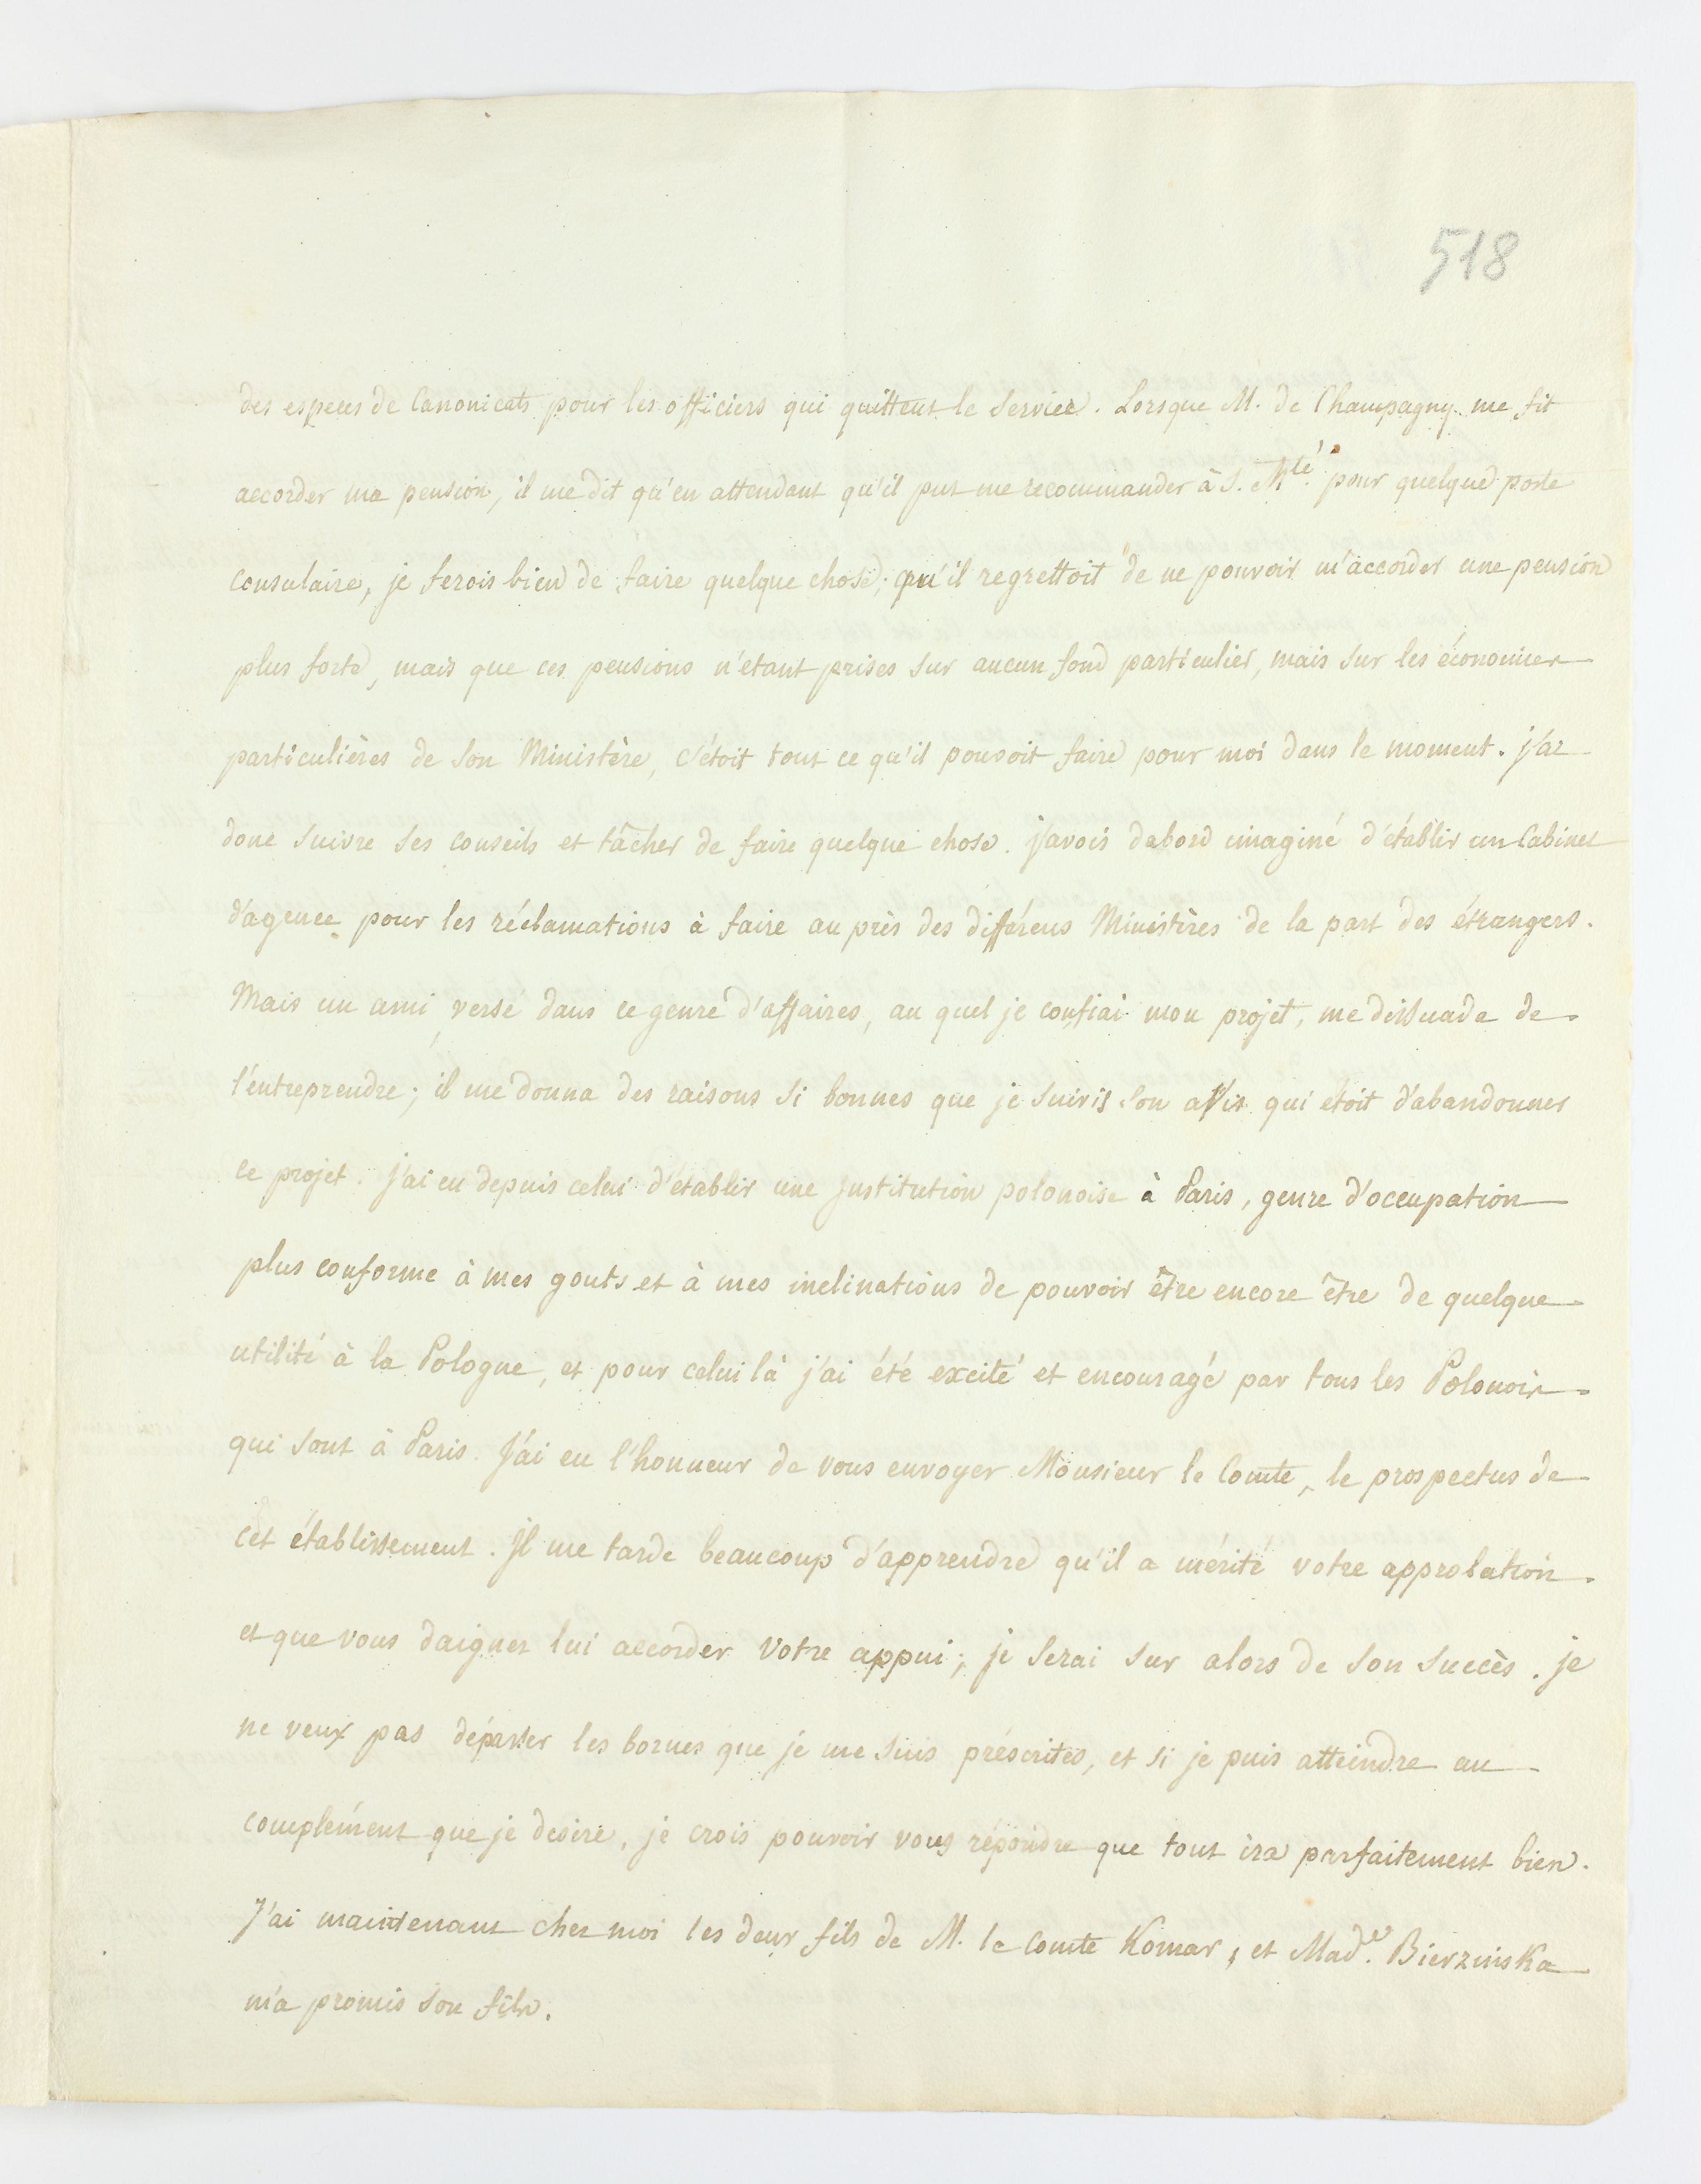 518
des especes de Canonicats pour les officiers qui quittent le Service. Lorsque M. de Champagny me fit
accorder ma pension, il me dit qu'en attendant qu'il put me recommander à S. Mté. pour quelque poste
consulaire, je ferois bien de faire quelque chose; qu'il regrettoit de ne pouvoir m'accorder une pension
plus forte, mais que ces pensions n'etant prises sur aucun fond particulier, mais sur les économies
particulières de Son Ministère, c'étoit tout ce qu'il pouvoit faire pour moi dans le moment. j'ai
donc suivre ses conseils et tâcher de faire quelque chose. j'avois dabord imaginé d'établir un Cabinet
d'agence pour les réclamations à faire au près des différens Ministères de la part des étrangers.
Mais un ami, versé dans ce genre d'affaires, au quel je confiai mon projet, me dissuada de
l'entreprendre; il me donna des raisons si bonnes que je suivis son avis qui etoit d'abandonner
ce projet. j'ai eu depuis celui d'établir une Institution polonoise à Paris, genre d'occupation
plus conforme à mes gouts et à mes inclinations de pouvoir être encore être de quelque
utilité à la Pologne, et pour celui là j'ai été excité et encouragé par tous les Polonois
qui sont à Paris. J'ai eu l'honneur de vous envoyer Monsieur le Comte, le prospectus de
cet établissement. Il me tarde beaucoup d'apprendre qu'il a mérité votre approbation
et que vous daignez lui accorder votre appui; je serai sur alors de son succès. je
ne veux pas dépasser les bornes que je me suis préscrites, et si je puis atteindre au
complément que je desire, je crois pouvoir vous répondre que tout ira parfaitement bien.
J'ai maintenant chez moi les deux fils de M. le Comte Komar, et Made. Bierzinska
m'a promis son fils.